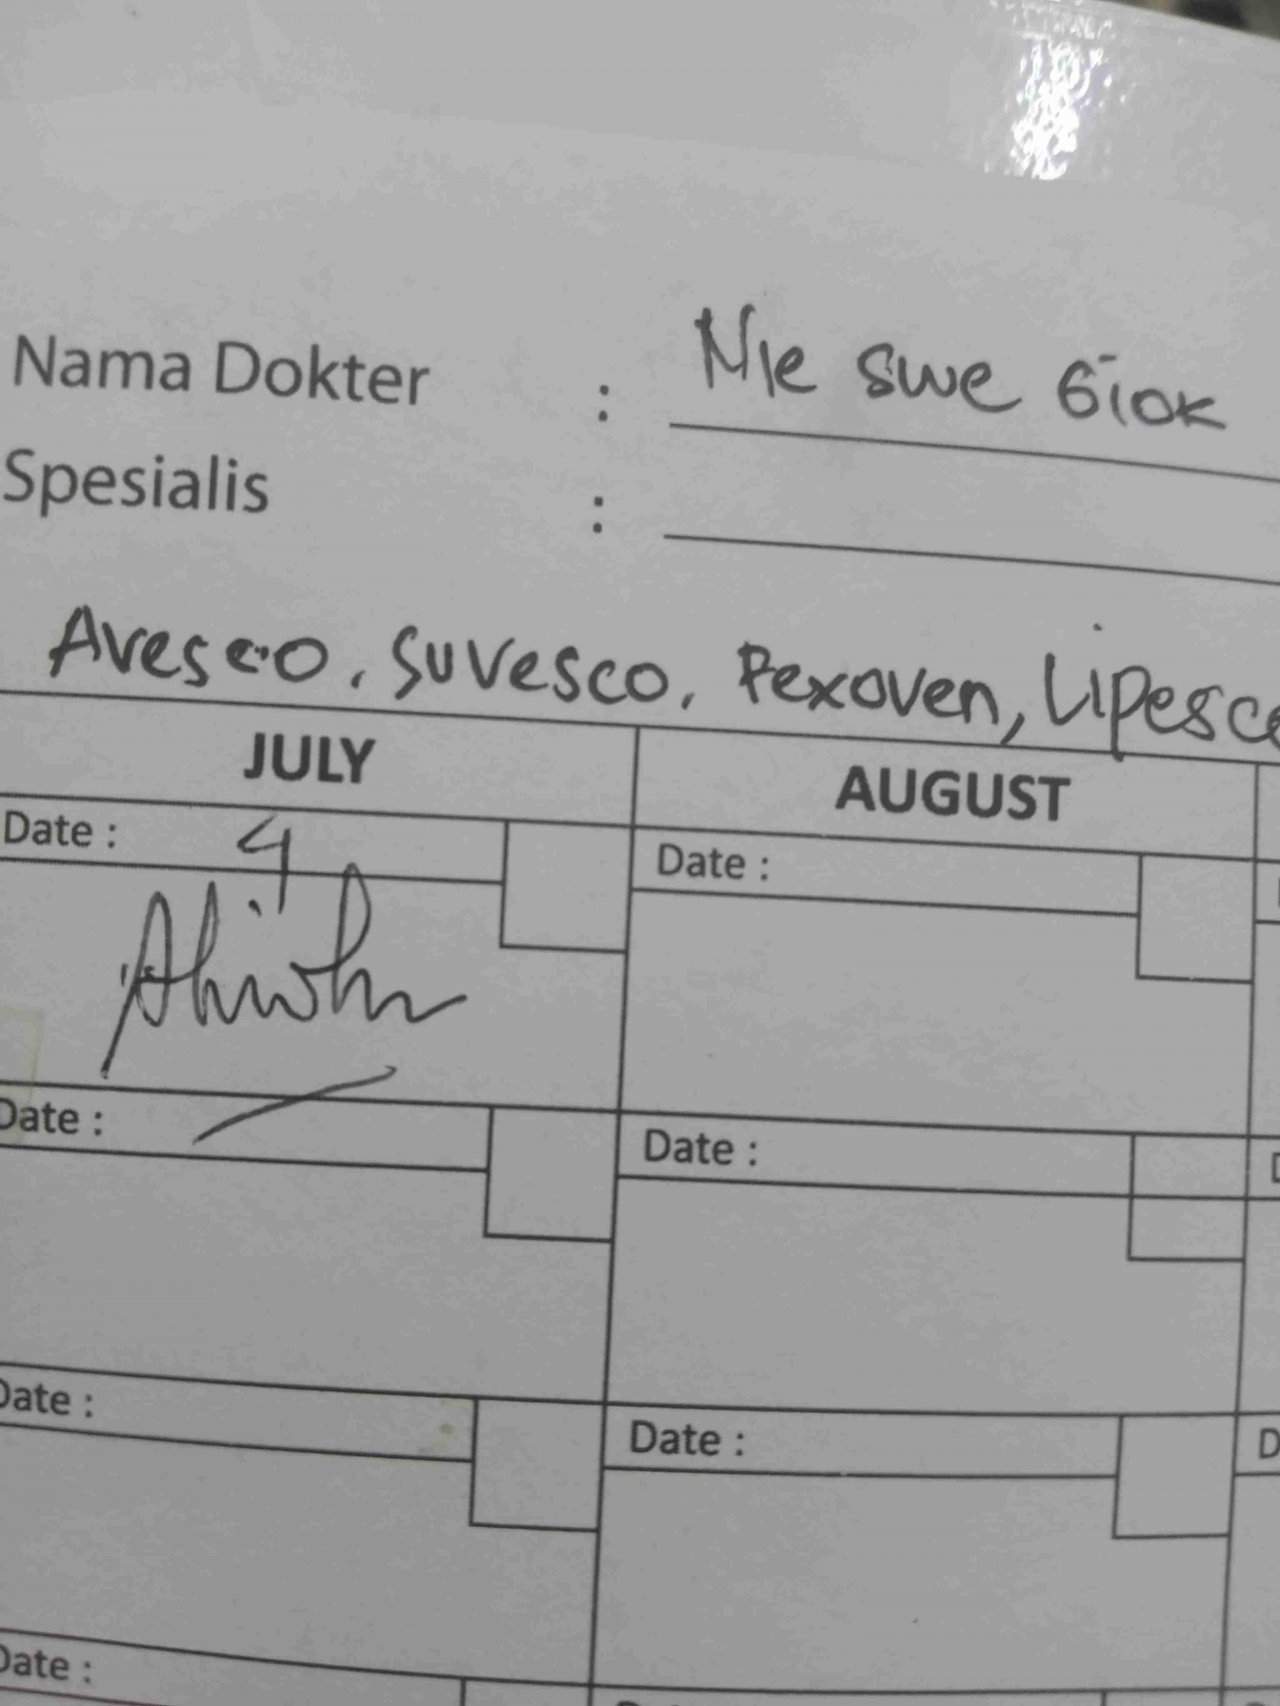 Nama Dokter : Nie swe Giok
Spesialis :
Avesco, Suvesco, Rexoven, Lipesco
JULY AUGUST
Date : 4 Date :
Date : Date :
Date : Date :
Date :